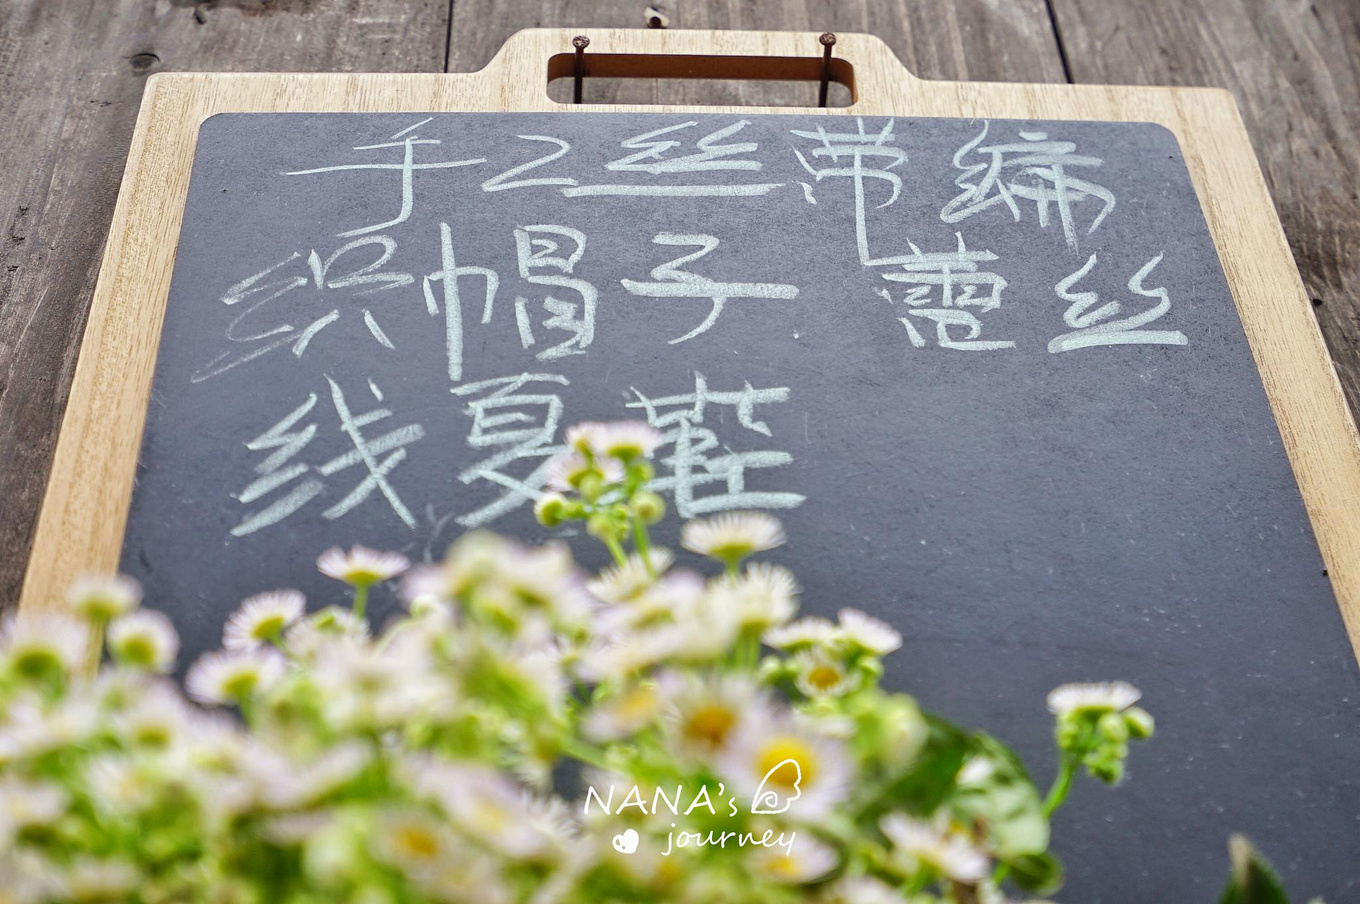 手工丝带编
织帽子 蕾丝
线夏鞋
NANA's
journey